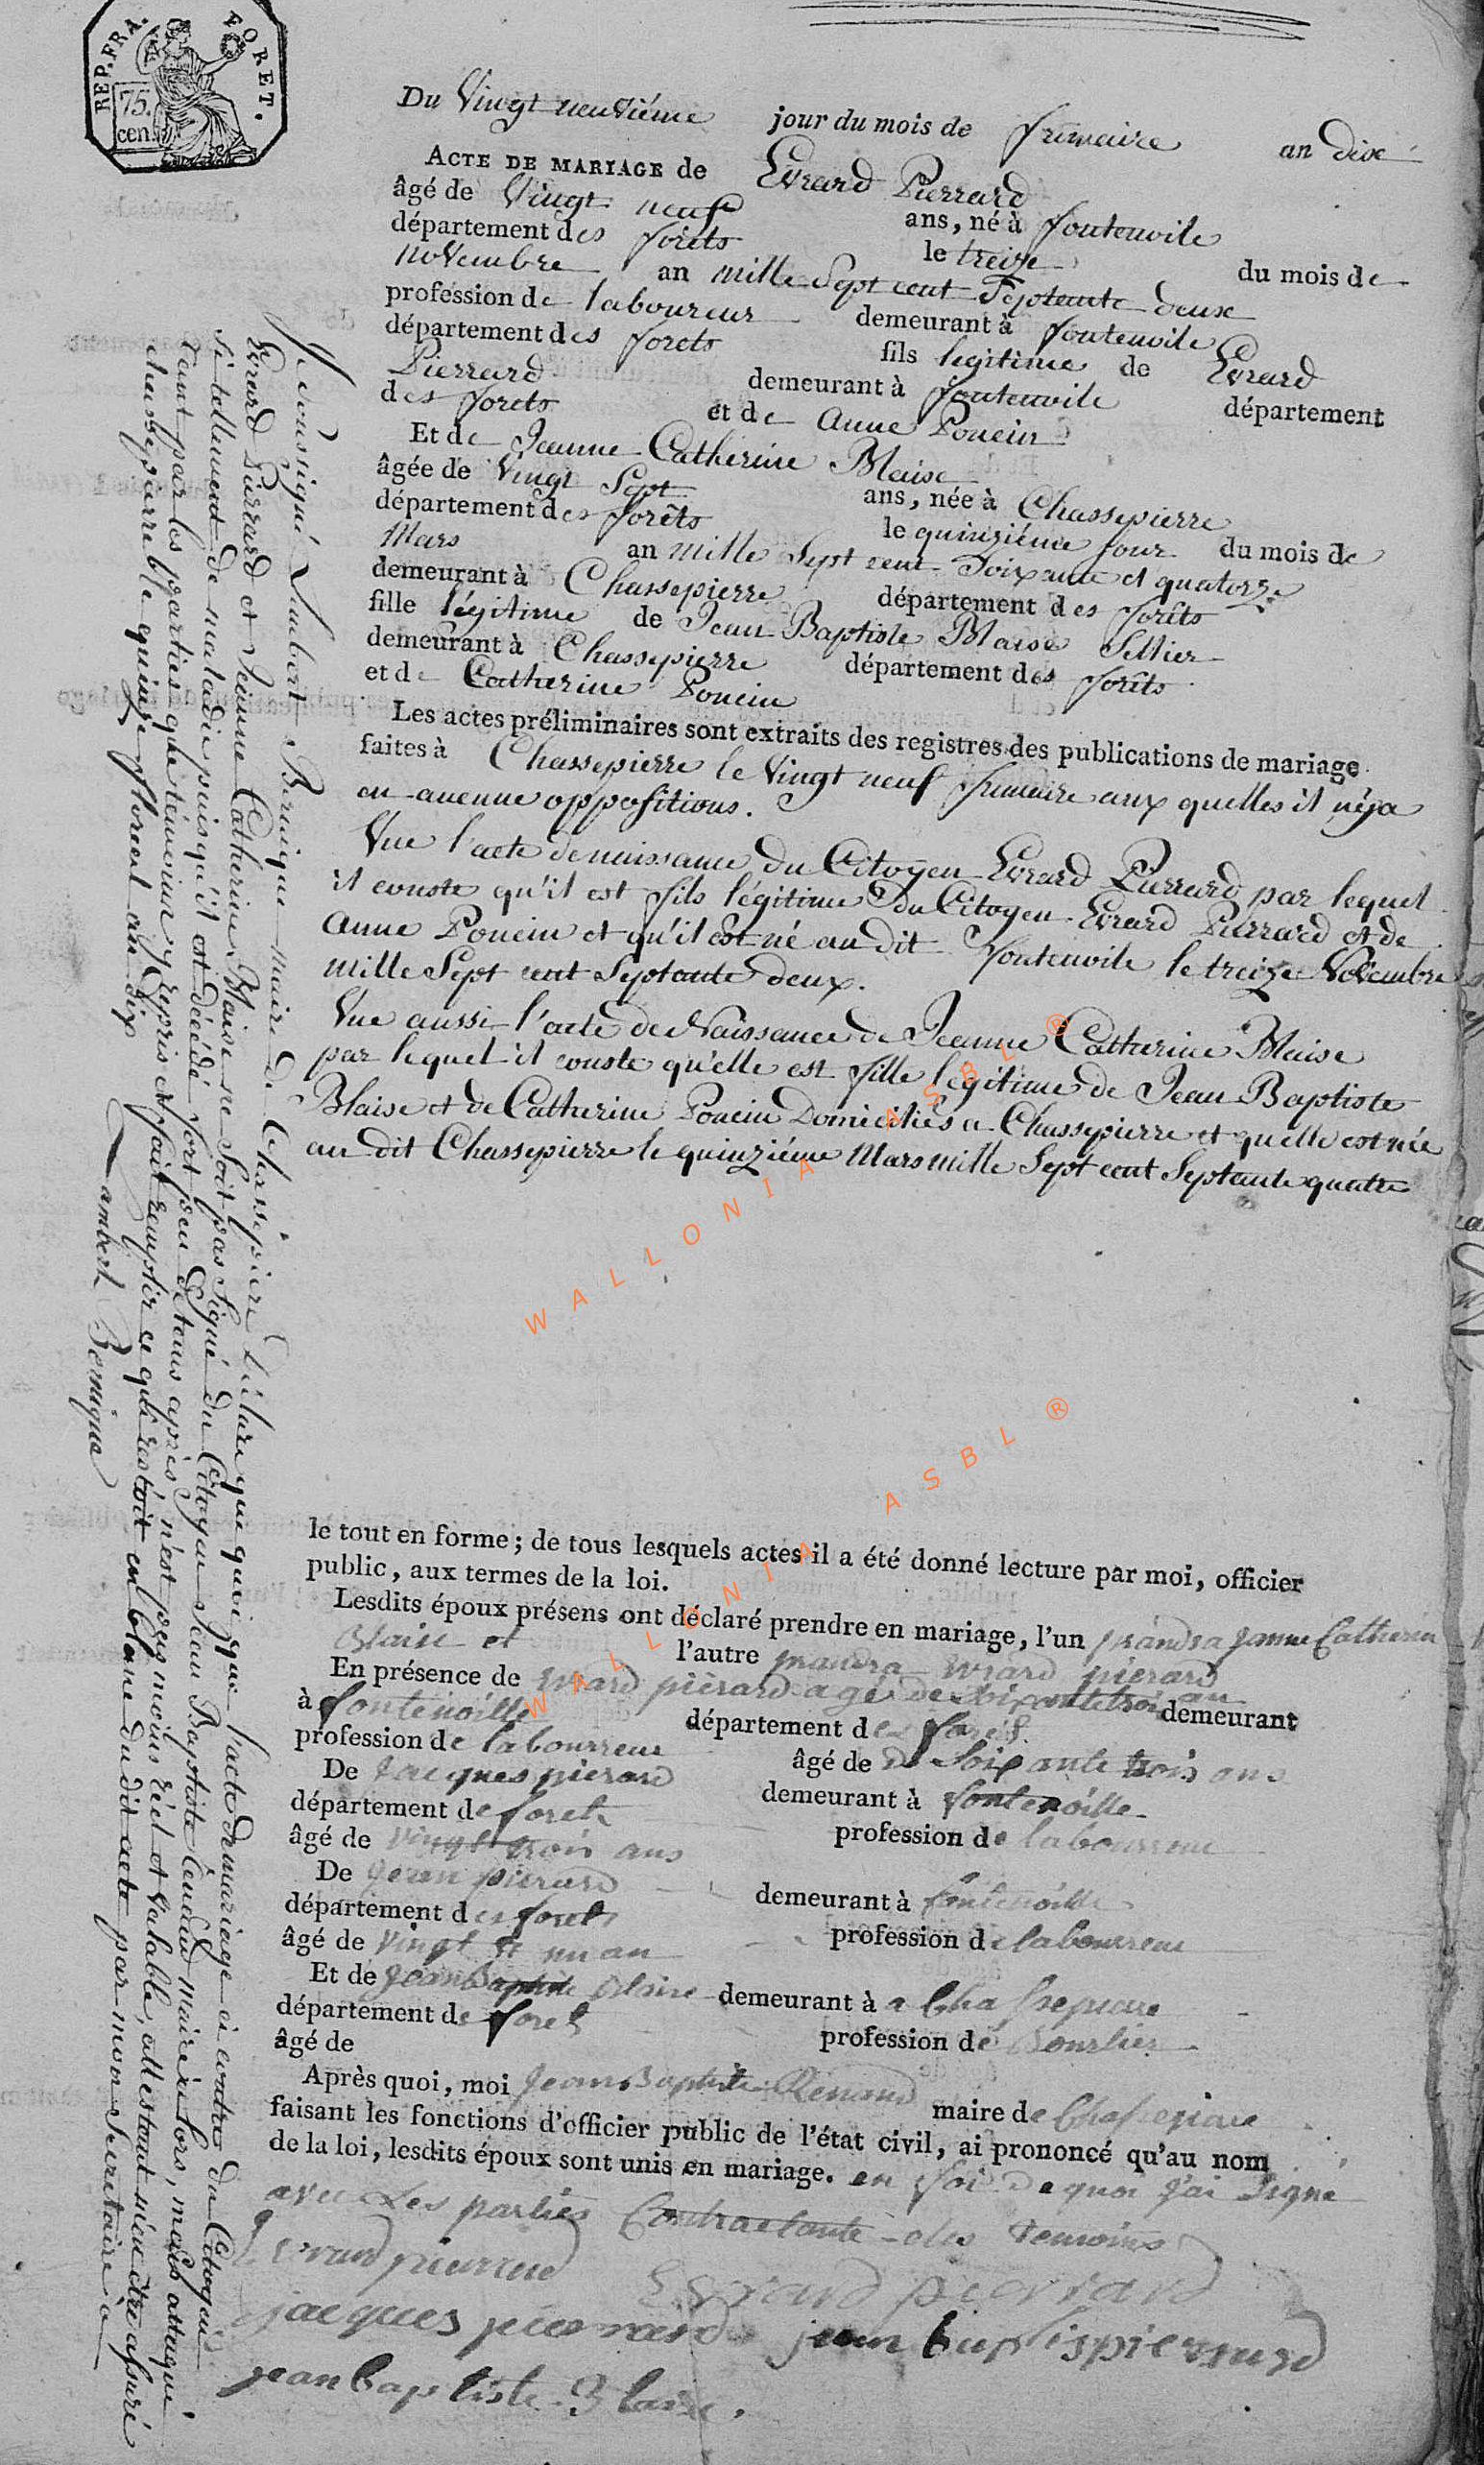 REP. FRA. FORET.
75. cen.
Du Vingt neuviéme jour du mois de frimaire an dix
ACTE DE MARIAGE de Evrard Pierrard
âgé de Vingt neuf ans, né à fontenoile
département des foréts le treize du mois de
novembre an mille Sept cent Septante deux
profession de laboureur demeurant à fontenoile
département des forets fils legitime de Evrard
Pierrard demeurant à fontenoile département
des forets et de anne Poncin
Et de Jeanne Catherine Blaise
âgée de Vingt Sept ans, née à Chassepierre
département des forêts le quinziéme jour du mois de
Mars an mille Sept cent Soixante et quatorze
demeurant à Chassepierre département des forêts
fille légitime de Jean Baptiste Blaise Sellier
demeurant à Chassepierre département des forêts
et de Catherine Poncin
Les actes préliminaires sont extraits des registres des publications de mariage
faites à Chassepierre le Vingt neuf frimaire aux quelles il n'éja
eu aucune oppositions.
Vue l'acte de naissance du Citoyen Evrard Pierrard par lequel
il conste qu'il est fils légitime du Citoyen Evrard Pierrard et de
Anne Poncin et qu'il est né au dit fontenoile le treize Novembre
mille Sept cent Septante deux.
Vue aussi l'acte de Naissance de Jeanne Catherine Blaise
par lequel il conste qu'elle est fille legitime de Jean Baptiste
Blaise et de Catherine Poncin Domiciliés a Chassepierre et quelle est née
au dit Chassepierre le quinziéme Mars mille Sept cent Septante quatre
WALLONIA ASBL ®
WALLONIA ASBL ®
le tout en forme; de tous lesquels actes il a été donné lecture par moi, officier
public, aux termes de la loi.
Lesdits époux présens ont déclaré prendre en mariage, l'un prandra Janne Catherin
Blaise et l'autre prandra Evrard pierard
En présence de Evrard piérard agé de Soixante trois an demeurant
à fontenoille département des foréts
profession de labourreur âgé de de Soixante trois ans
De Jacques pierard demeurant à fontenoille
département de foret profession de labourreur
âgé de vingt trois ans
De Jean pierard demeurant à fontenoille
département des foret profession de labourreur
âgé de Vingt et un an
Et de Jean Baptiste Blaise demeurant à a Chassepierre
département de foret profession de bourlier
âgé de
Après quoi, moi Jean Baptiste Renaud maire de Chassepiere
faisant les fonctions d'officier public de l'état civil, ai prononcé qu'au nom
de la loi, lesdits époux sont unis en mariage. en foi de quoi J'ai Signé
avec Les parties Contractante des temoins
Evrard pierrard Evrard pierrard
jacques pierrard jean baptis pierrard
jean baptiste Blaise.
Je soussigné Lambert Bernique maire de Chassepiere Déclare que quoi que l'acte de mariage ci contre du Citoyen
Evrard Pierrard et Jeanne Catherine Blaise ne Soit pas Signé du Citoyen Jean Baptiste Renaud maire alors, mais attaqué
Si tellement de maladie puis qu'il est décédé fort peu de tems après n'est pas moins réel et valable, attestant m'en être assuré
tant par les parties que témoins y repris et fait remplir ce qui restoit en blanc du dit acte par mon Secretaire a
chassepierre ble quinze floreal an dix
Lambert Bernique